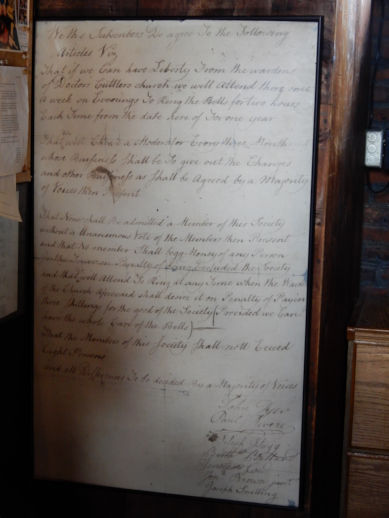 We the Subscribers Do agree To the Following
Articles Viz
That if we Can have Liberty From the wardens
of Doctor Cuttlers church we will Attend there once
a week on Evenings To Ring the Bells for two hours
Each Time from the date here of For one year
That we will Choose a Moderator Every three Months
whose Business Shall be To give out the Changes
and other Business as Shall be Agreed by a Majority
of Voices then Present
That None shall Be admitted a Member of this Society
without a Unanimous Vote of the Members then Present
and that No member Shall begg Money of any Person
in the Tower on Penalty of being Excluded the Society
and that we will Attend To Ring at any Time when the Wardens
of the Church Aforesaid shall desire it on Penalty of Paying
three Shillings for the good of the Society Provided we Can
have the whole Care of the Bells
That the Members of this Society Shall nott Exceed
Eight Persons
and all Differences To be decided by a Majority of Voices
John Dyer
Paul Revere
Josiah Flagg
Bartho Ballard
Jonathan Law
Jona Brown junr
Joseph Snelling